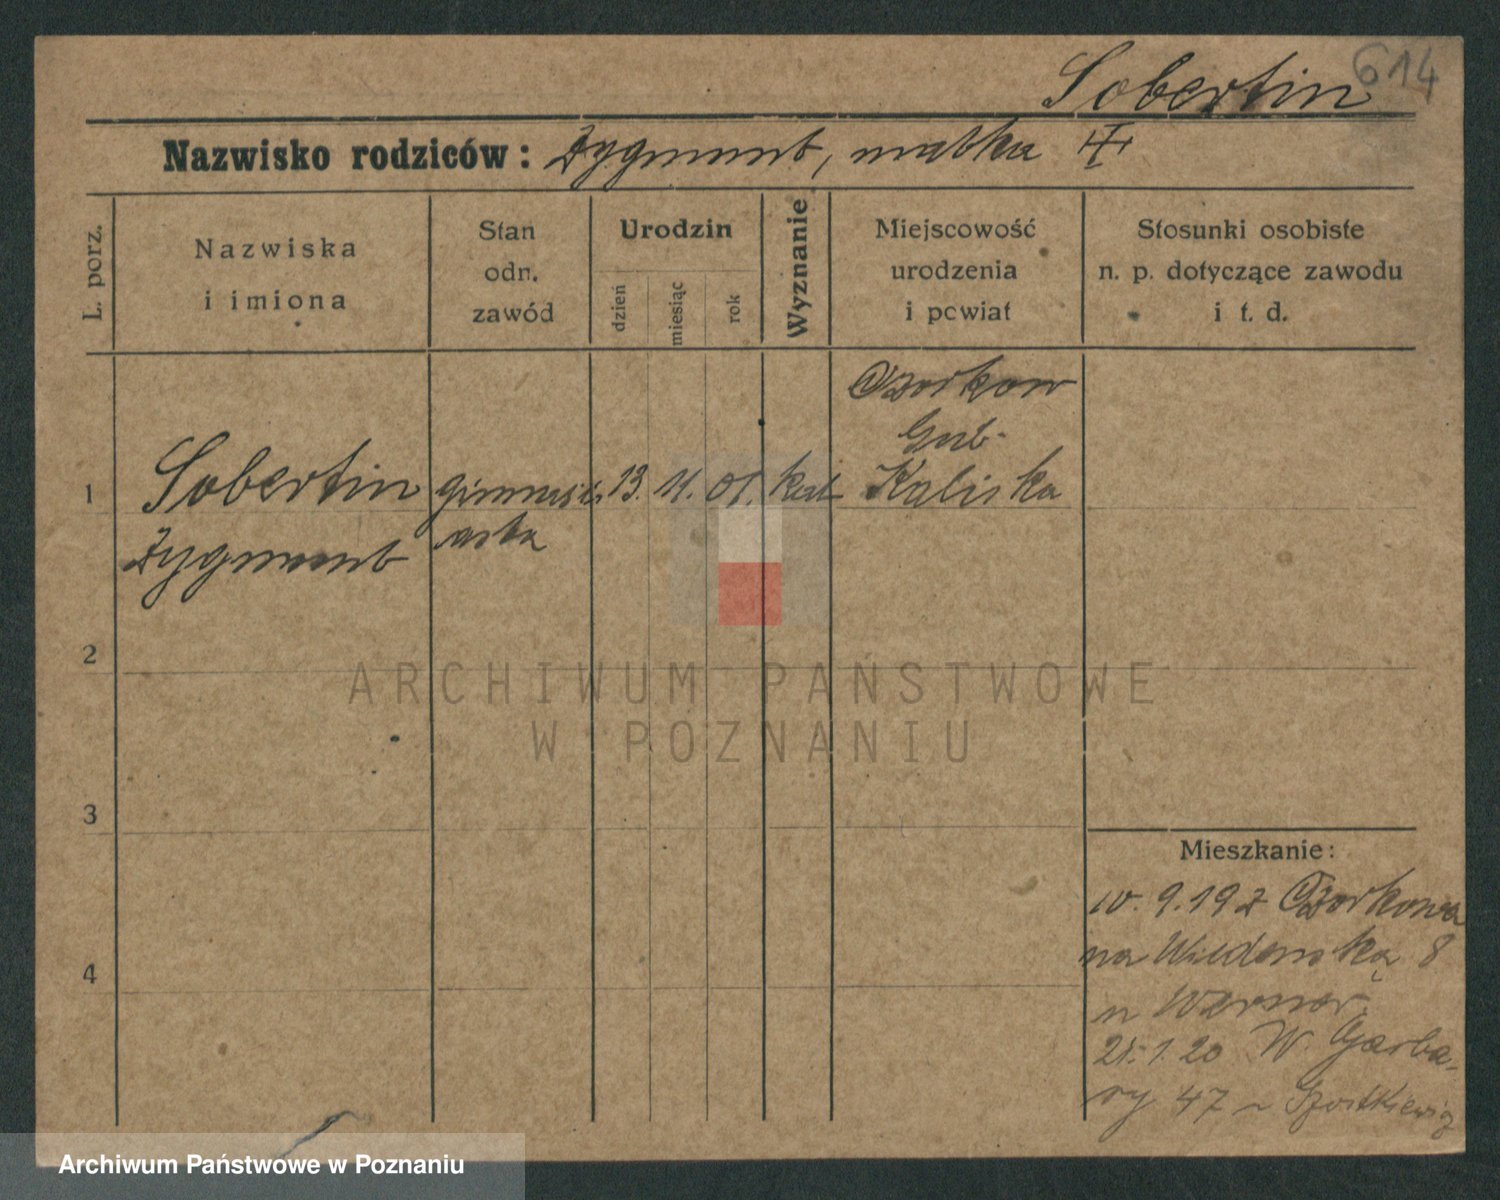 614
Sobertin
Nazwisko rodziców: Zygmunt, matka
L. porz.
Nazwiska
i imiona
Stan
odn.
zawód
Urodzin
dzień
miesiąc
rok
Wyznanie
Miejscowość
urodzenia
i powiat
Stosunki osobiste
n. p. dotyczące zawodu
i t. d.
1
Sobertin
Zygmunt
gimnazi
asta
13. 11. 01.
kat
Ozorkow
Gub.
Kaliska
2
3
4
Mieszkanie:
10. 9. 19 z Ozorkowa
na 8
u Werner
21. 1. 20 W. Garba-
ry 47
ARCHIWUM PAŃSTWOWE
W POZNANIU
Archiwum Państwowe w Poznaniu